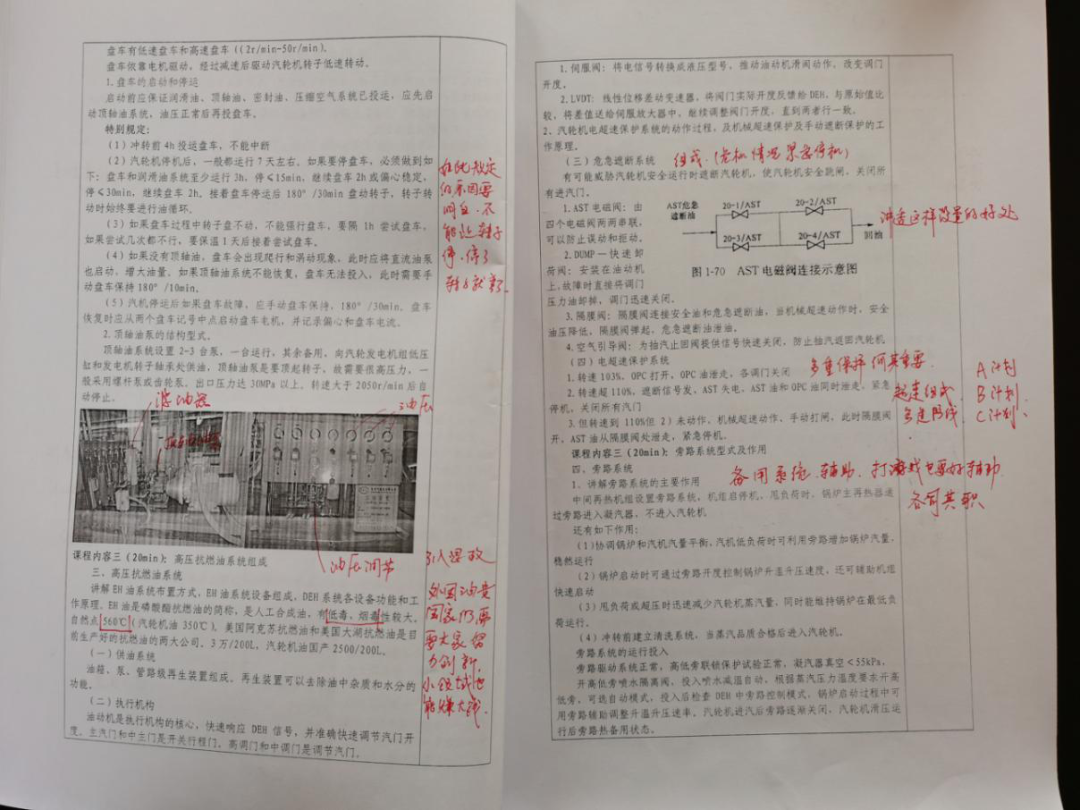 盘车有低速盘车和高速盘车((2r/min-50r/min)。
盘车依靠电机驱动，经过减速后驱动汽轮机转子低速转动。
1.盘车的启动和停运
启动前应保证润滑油、顶轴油、密封油、压缩空气系统已投运，应先启
动顶轴油系统，油压正常后再投盘车。
特别规定：
（1）冲转前4h投运盘车，不能中断
（2）汽轮机停机后，一般都运行7天左右。如果要停盘车，必须做到如
下：盘车和润滑油系统至少运行3h，停≤15min，继续盘车2h或偏心稳定，
停≤30min，继续盘车2h，接着盘车停运后180°/30min盘动转子，转子转
动时始终要进行油循环。
（3）如果盘车过程中转子盘不动，不能强行盘车，要隔1h尝试盘车，
如果尝试几次都不行，要保温1天后接着尝试盘车。
（4）如果没有顶轴油，盘车会出现爬行和涡动现象，此时应将直流油泵
也启动，增大油量。如果顶轴油系统不能恢复，盘车无法投入，此时需要手
动盘车保持180°/10min。
（5）汽机停运后如果盘车故障，应手动盘车保持，180°/30min，盘车
恢复时应从两个盘车记号中点启动盘车电机，并记录偏心和盘车电流。
2.顶轴油泵的结构型式。
顶轴油系统设置2-3台泵，一台运行，其余备用，向汽轮发电机组低压
缸和发电机转子轴承处供油，顶轴油泵是要顶起转子，故需要很高压力，一
般采用螺杆泵或齿轮泵，出口压力达30MPa以上，转速大于2050r/min后自
动停止。
在此规定
的原因要
明白，不
能让转子
停，停了
转子就弯了
滤油器
油压
油压调节
课程内容三（20min）：高压抗燃油系统组成
三、高压抗燃油系统
讲解EH油系统布置方式，EH油系统设备组成，DEH系统各设备功能和工
作原理。EH油是磷酸酯抗燃油的简称，是人工合成油，有低毒、烟毒性较大，
自然点560℃（汽轮机油350℃），美国阿克苏抗燃油和美国大湖抗燃油是目
前生产好的抗燃油的两大公司，3万/200L，汽轮机油国产2500/200L。
（一）供油系统
油箱、泵、管路级再生装置组成，再生装置可以去除油中杂质和水分的
功能。
（二）执行机构
油动机是执行机构的核心，快速响应DEH信号，并准确快速调节汽门开
度，主汽门和中主门是开关行程门，高调门和中调门是调节汽门。
引入思政
外国油贵
国家仍需
要大家努
力创新，
小领域也
能赚大钱
1.伺服阀：将电信号转换成液压型号，推动油动机滑阀动作，改变调门
开度。
2.LVDT：线性位移差动变速器，将阀门实际开度反馈给DEH，与原始值比
较，将差值送给伺服放大器中，继续调整阀门开度，直到两者行一致。
2、汽轮机电超速保护系统的动作过程，及机械超速保护及手动遮断保护的工
作原理。
（三）危急遮断系统
组成.(危机情况紧急停机)
有可能威胁汽轮机安全运行时遮断汽轮机，使汽轮机安全跳闸，关闭所
有进汽门。
1.AST电磁阀：由
四个电磁阀两两串联，
可以防止误动和拒动。
2.DUMP—快速卸
荷阀：安装在油动机
上，故障时直接将调门
压力油卸掉，调门迅速关闭。
AST危急
遮断油
20-1/AST
20-2/AST
20-3/AST
20-4/AST
回油
图1-70 AST电磁阀连接示意图
讲透这样设置的好处
3.隔膜阀：隔膜阀连接安全油和危急遮断油，当机械超速动作时，安全
油压降低，隔膜阀弹起，危急遮断油泄油。
4.空气引导阀：为抽汽止回阀提供信号快速关闭，防止抽汽返回汽轮机
（四）电超速保护系统
1.转速103%，OPC打开，OPC油泄走，各调门关闭
2.转速超110%，遮断信号发，AST失电，AST油和OPC油同时泄走，紧急
停机，关闭所有汽门
3.但转速到110%但2）未动作，机械超速动作，手动打闸，此时隔膜阀
开，AST油从隔膜阀处泄走，紧急停机。
多重保护何其重要
多道防线
A计划
B计划
C计划
课程内容三（20min）：旁路系统型式及作用
四、旁路系统
1、讲解旁路系统的主要作用
备用系统.辅助.打游戏也要好辅助
各司其职
中间再热机组设置旁路系统，机组启停机、甩负荷时，锅炉主再热器通
过旁路进入凝汽器，不进入汽轮机
还有如下作用：
（1）协调锅炉和汽机汽量平衡，汽机低负荷时可利用旁路增加锅炉汽量，
稳然运行
（2）锅炉启动时可通过旁路开度控制锅炉升温升压速度，还可辅助机组
快速启动
（3）甩负荷或超压时迅速减少汽轮机蒸汽量，同时能维持锅炉在最低负
荷运行。
（4）冲转前建立清洗系统，当蒸汽品质合格后进入汽轮机。
旁路系统的运行投入
旁路驱动系统正常，高低旁联锁保护试验正常，凝汽器真空<55kPa。
开高低旁喷水隔离阀，投入喷水减温自动，根据蒸汽压力温度要求开高
低旁，可选自动模式，投入后检查DEH中旁路控制模式，锅炉启动过程中可
用旁路辅助调整升温升压速率，汽轮机进汽后旁路逐渐关闭，汽轮机滑压运
行后旁路热备用状态。